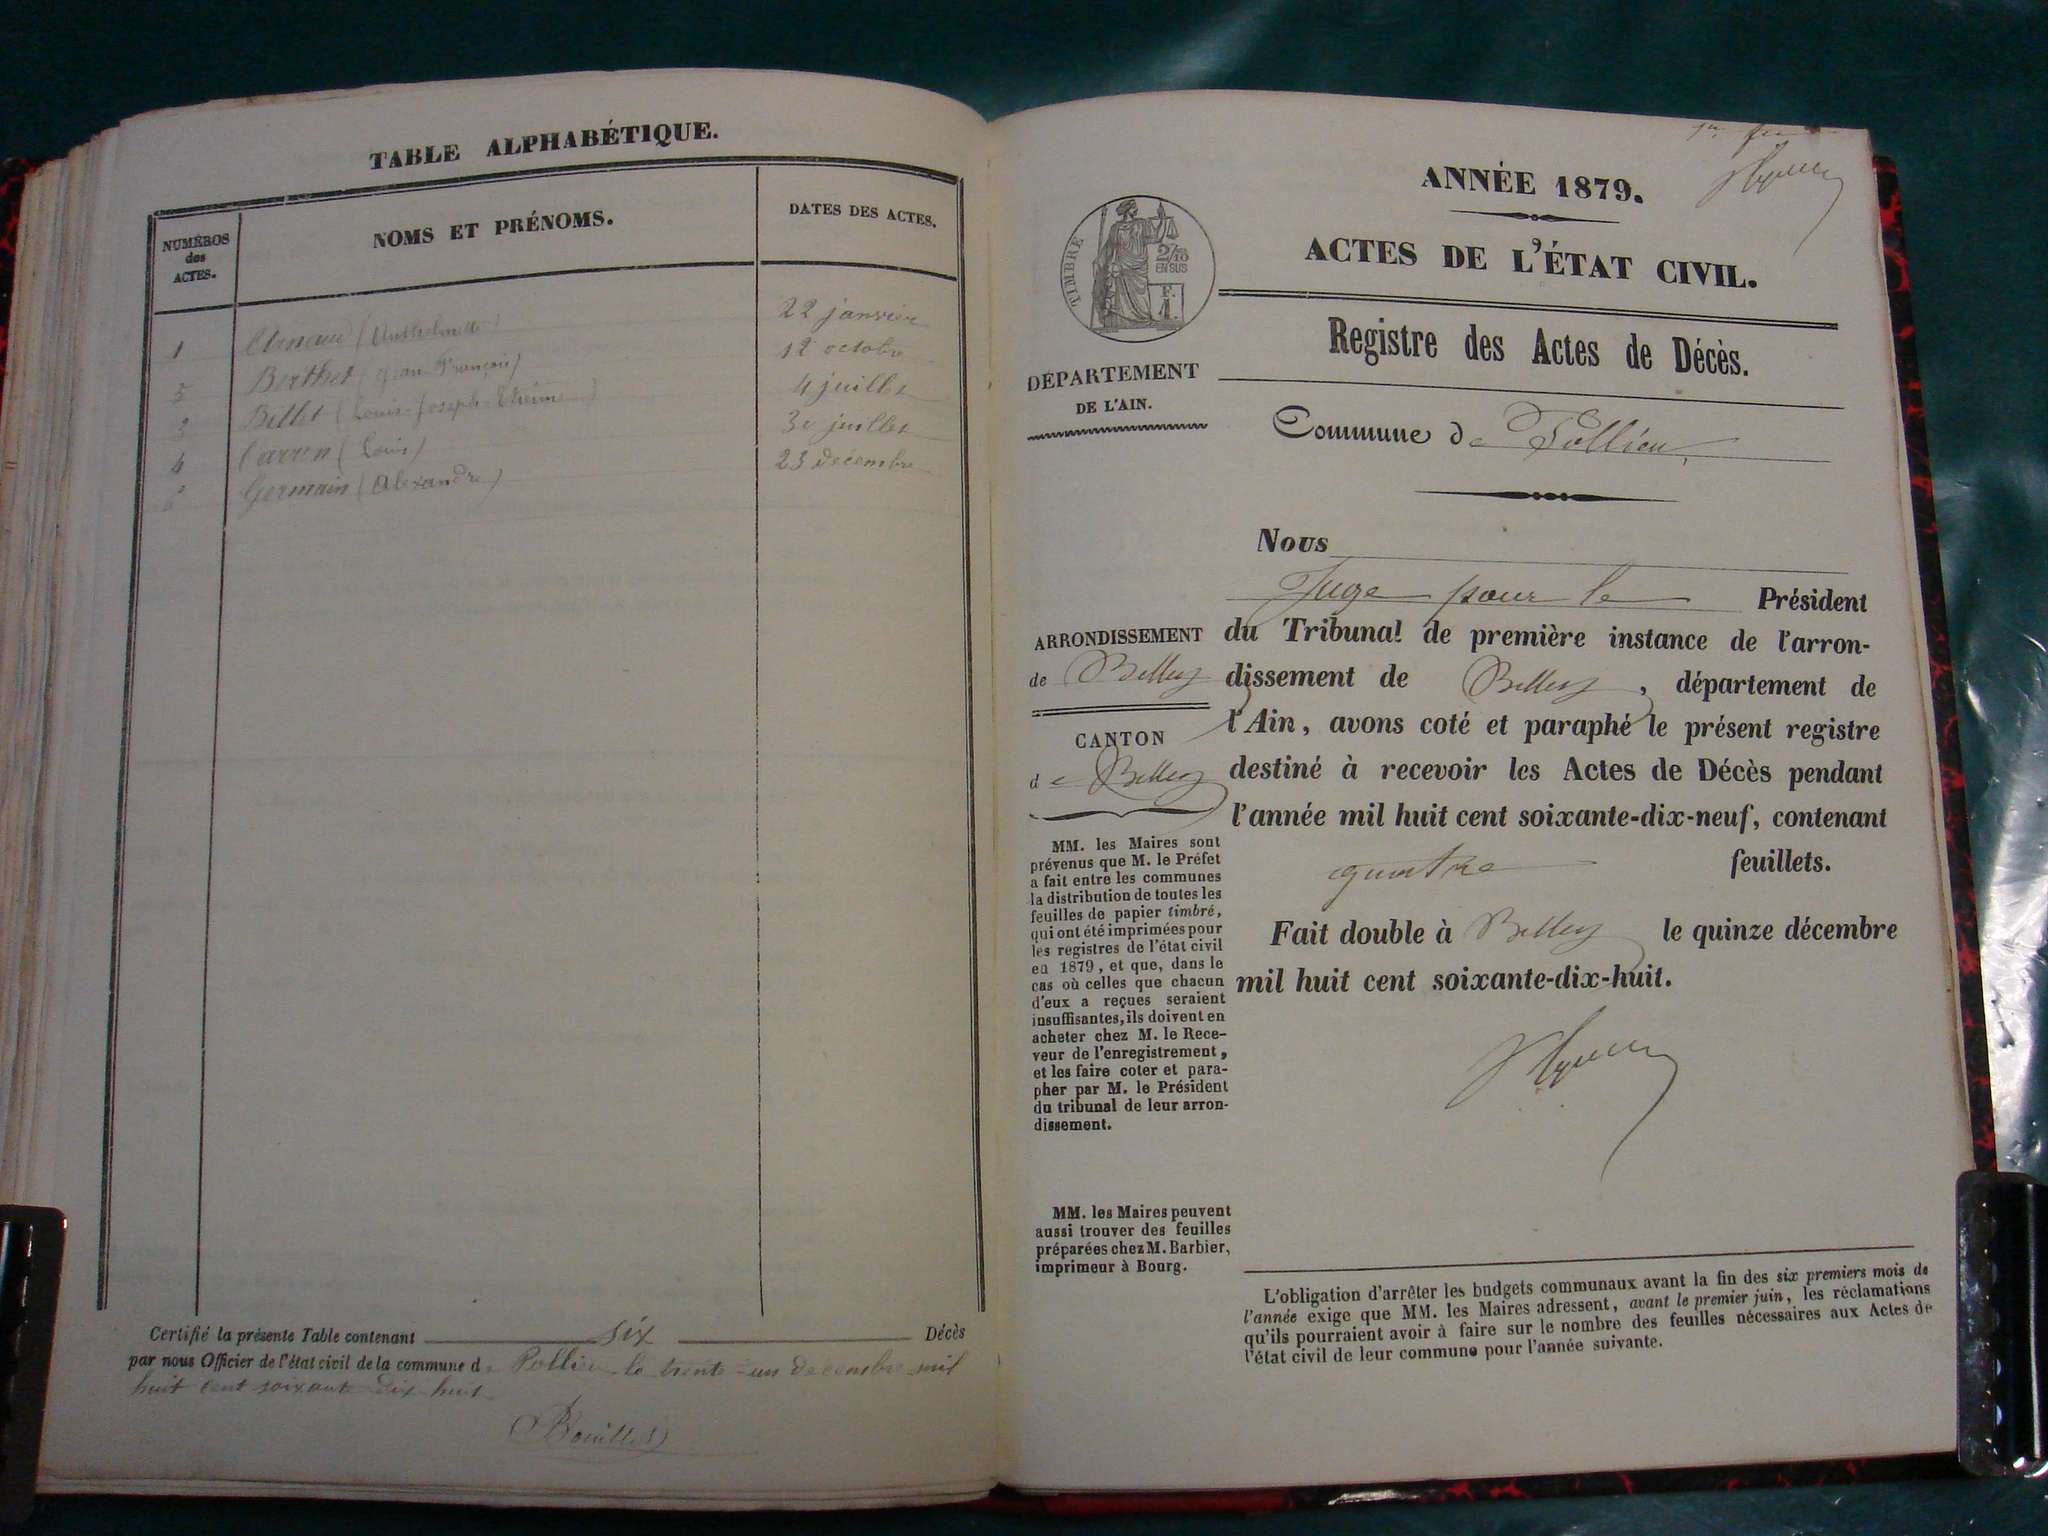 TABLE ALPHABÉTIQUE.
NUMÉROS
des
ACTES.
NOMS ET PRÉNOMS.
DATES DES ACTES.
1 Arnaud (Anthelmette) 22 janvier
5 Berthet (Jean François) 12 octobre
3 Billet (Louis-Joseph-Etienne) 4 juillet
4 Carron (Louis) 30 juillet
6 Germain (Alexandre) 23 décembre
Certifié la présente Table contenant six Décès
par nous Officier de l'état civil de la commune de Pollieu le trente-un decembre mil
huit cent soixante dix huit
ANNÉE 1879.
ACTES DE L'ÉTAT CIVIL.
TIMBRE
2/10
EN SUS
F.
1.
Registre des Actes de Décès.
DÉPARTEMENT
DE L'AIN.
Commune de Pollieu
Nous
Juge pour le Président
du Tribunal de première instance de l'arron-
dissement de Belley, département de
l'Ain, avons coté et paraphé le présent registre
destiné à recevoir les Actes de Décès pendant
l'année mil huit cent soixante-dix-neuf, contenant
quatre feuillets.
Fait double à Belley le quinze décembre
mil huit cent soixante-dix-huit.
ARRONDISSEMENT
de Belley
CANTON
de Belley
MM. les Maires sont
prévenus que M. le Préfet
a fait entre les communes
la distribution de toutes les
feuilles de papier timbré,
qui ont été imprimées pour
les registres de l'état civil
en 1879, et que, dans le
cas où celles que chacun
d'eux a reçues seraient
insuffisantes, ils doivent en
acheter chez M. le Rece-
veur de l'enregistrement,
et les faire coter et para-
pher par M. le Président
du tribunal de leur arron-
dissement.
MM. les Maires peuvent
aussi trouver des feuilles
préparées chez M. Barbier,
imprimeur à Bourg.
L'obligation d'arrêter les budgets communaux avant la fin des six premiers mois de
l'année exige que MM. les Maires adressent, avant le premier juin, les réclamations
qu'ils pourraient avoir à faire sur le nombre des feuilles nécessaires aux Actes de
l'état civil de leur commune pour l'année suivante.